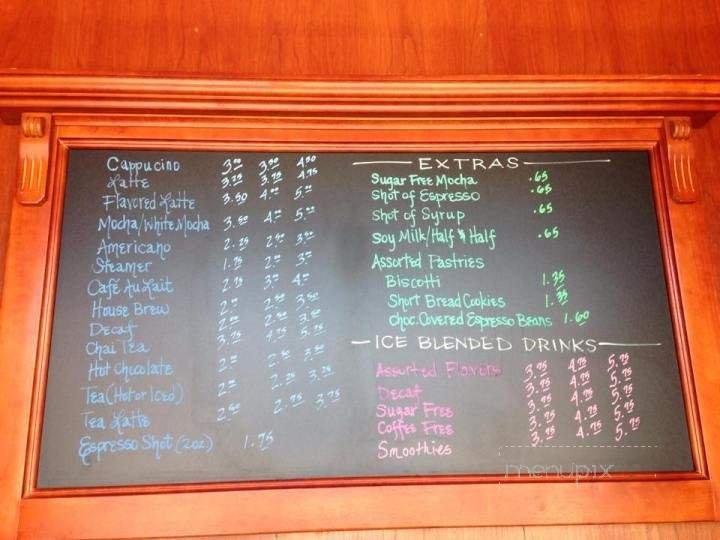 Cappucino 3.00 3.50 4.50
Latte 3.25 3.75 4.75
Flavored Latte 3.50 4.00 5.00
Mocha/White Mocha 3.50 4.00 5.00
Americano 2.25 2.50 3.00
Steamer
Café Au Lait
House Brew
Decaf
Chai Tea
Hot Chocolate
Tea (Hot or Iced)
Tea Latte
Espresso Shot (2oz) 1.75
EXTRAS
Sugar Free Mocha .65
Shot of Espresso .65
Shot of Syrup .65
Soy Milk/Half & Half .65
Assorted Pastries
Biscotti 1.35
Short Bread Cookies 1.35
Choc. Covered Espresso Beans 1.60
ICE BLENDED DRINKS
Assorted Flavors 3.75 4.75 5.75
Decaf 3.75 4.75 5.75
Sugar Free 3.75 4.75 5.75
Coffee Free 3.75 4.75 5.75
Smoothies 3.75 4.75 5.75
menupix